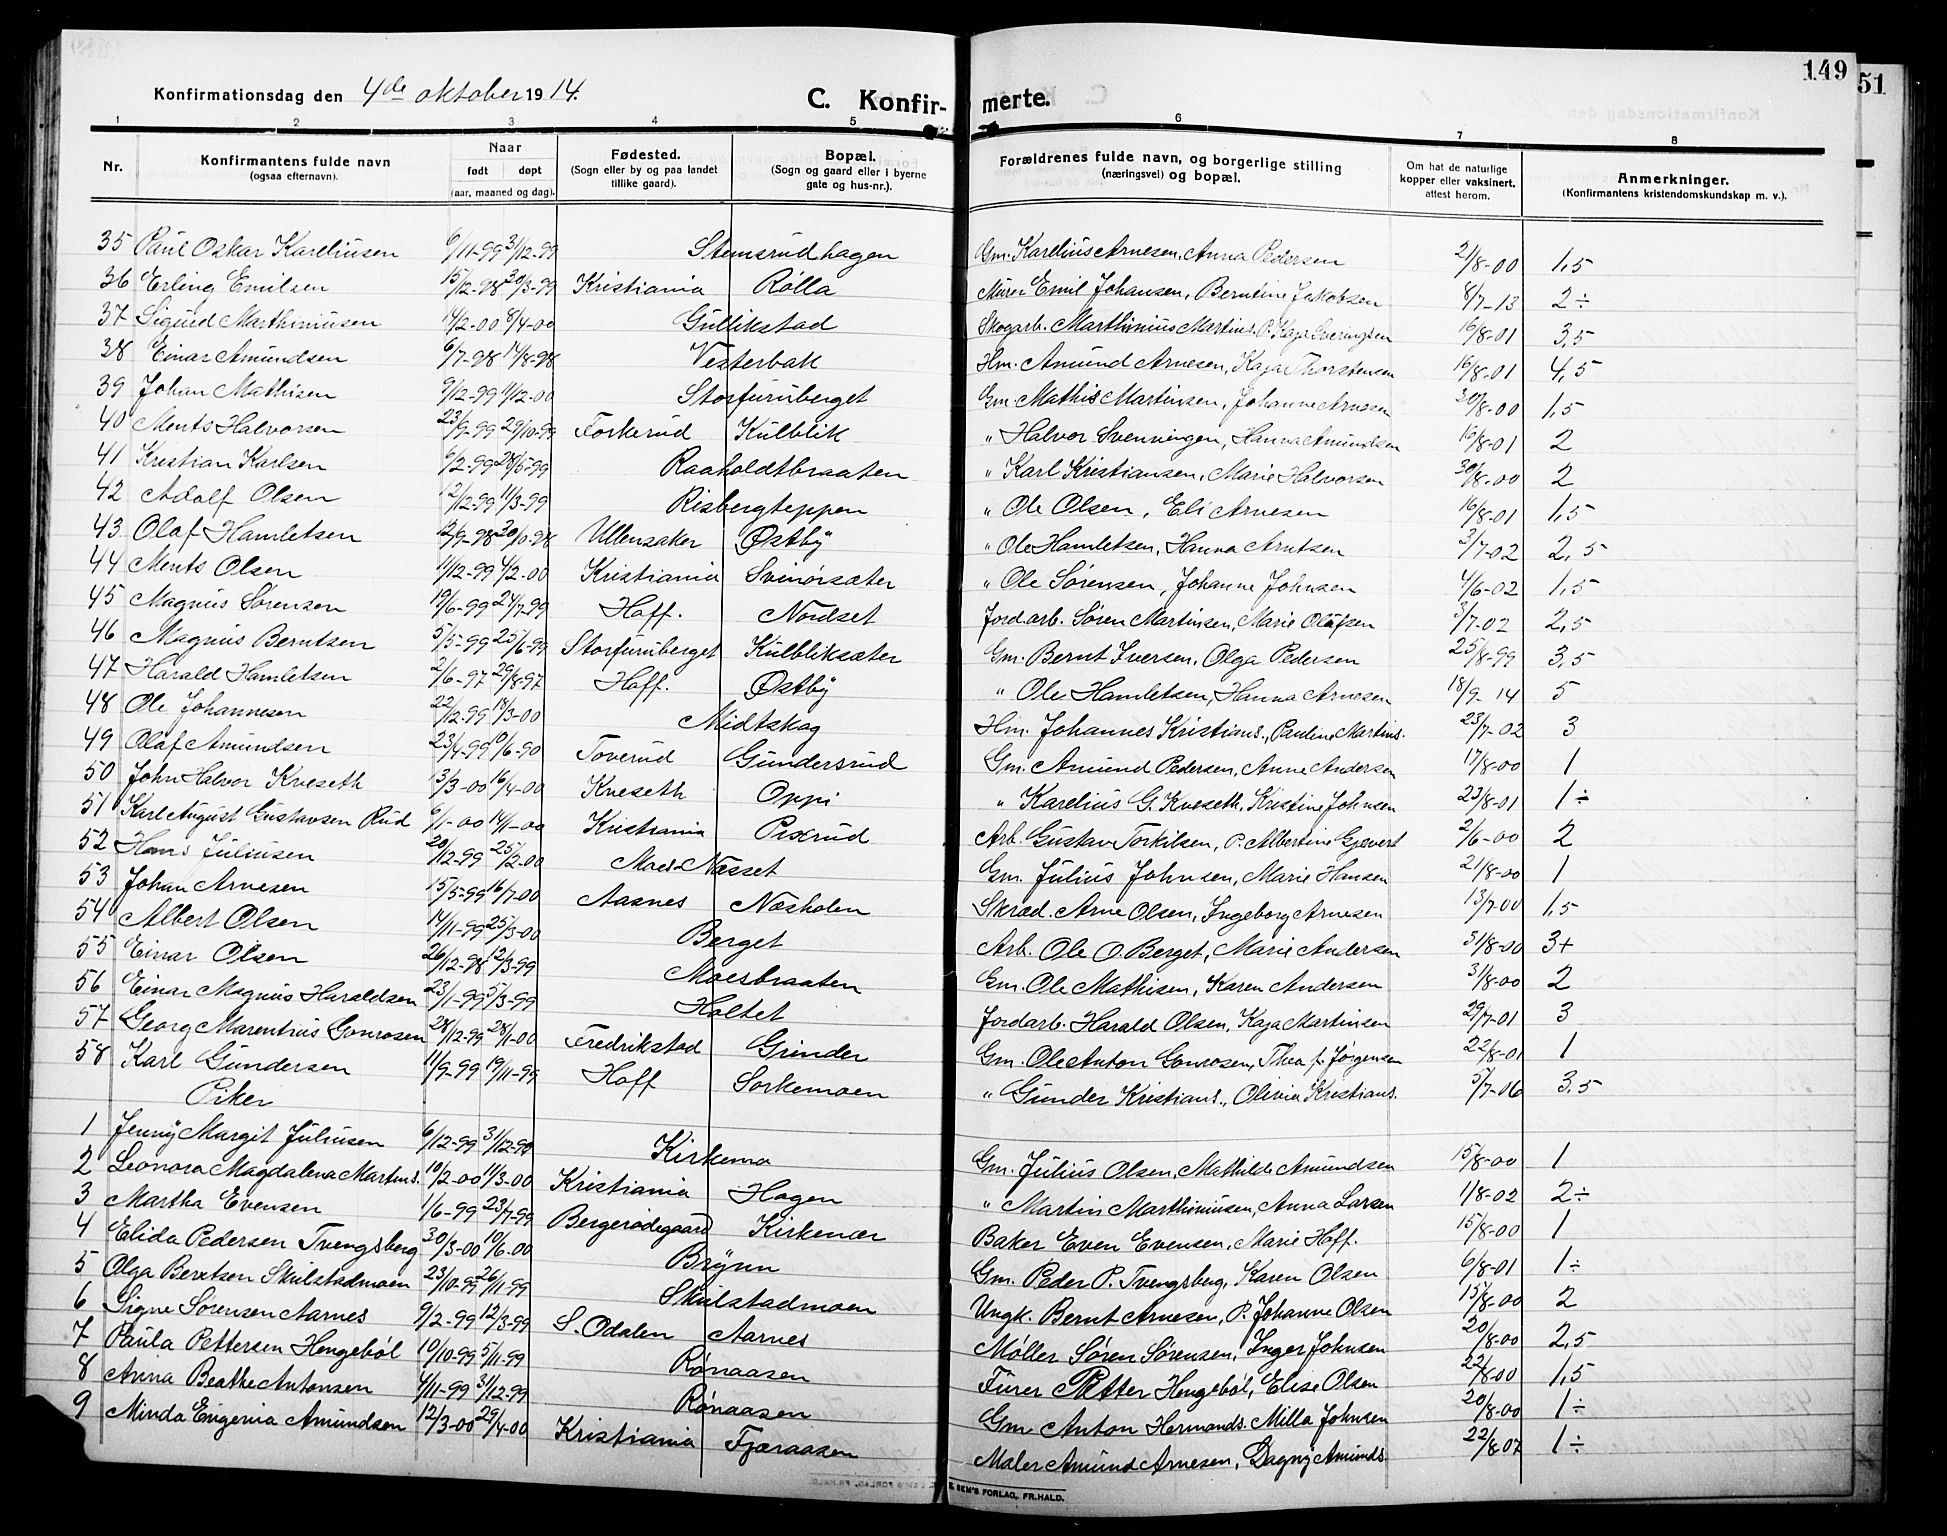 149
51
Konfirmationsdag den 4de oktober 1914.
C. Konfir-merte.
1 2 3 4 5 6 7 8
Nr. Konfirmantens fulde navn (ogsaa efternavn). Naar født døpt (aar, maaned og dag). Fødested. (Sogn eller by og paa landet tillike gaard). Bopæl. (Sogn og gaard eller i byerne gate og hus-nr.). Forældrenes fulde navn, og borgerlige stilling (næringsvei) og bopæl. Om hat de naturlige kopper eller vaksinert, attest herom. Anmerkninger. (Konfirmantens kristendomskundskap m. v.).
35 Paul Oskar Kareliusen 6/11-99 31/12-99 Stemsrudhagen Gm. Karelius Arnesen, Anna Pedersen 21/8-00 1,5
36 Erling Emilsen 15/12-98 30/3-99 Kristiania Rølla Murer Emil Johansen, Berntine Jakobsen 8/7-13 2÷
37 Sigurd Marthiniusen 14/2-00 8/4-00 Gullikstad Skogarb. Marthinius Martins. P. Kaja Sveringsen 16/8-01 3,5
38 Einar Amundsen 6/7-98 14/8-98 Vesterbak Hm. Amund Arnesen, Kaja Thorstensen 16/8-01 4,5
39 Johan Mathisen 9/12-99 1/12-00 Storfuruberget Gm. Mathis Martinsen, Johanne Arnesen 30/8-00 1,5
40 Ments Halvorsen 23/9-99 29/10-99 Forkerud Kulblik " Halvor Svenningen, Hanna Amundsen 16/8-01 2
41 Kristian Karlsen 6/2-99 28/5-99 Raaholdtbraaten " Karl Kristiansen, Marie Halvorsen 30/8-00 2
42 Adolf Olsen 12/12-99 11/3-99 Risbergteppen " Ole Olsen, Eli Arnesen 16/8-01 1,5
43 Olaf Hamletsen 12/9-98 30/10-98 Ullensaker Østby " Ole Hamletsen, Hanna Arntsen 3/7-02 2,5
44 Ments Olsen 11/12-99 4/2-00 Kristiania Svinørsæter " Ole Sørensen, Johanne Johnsen 4/6-02 1,5
45 Magnus Sørensen 19/6-99 24/7-99 Hoff. Nordset Jordarb. Søren Martinsen, Marie Olafsen 3/7-02 2,5
46 Magnus Berntsen 5/5-99 25/6-99 Storfuruberget Kulbliksæter Gm. Bernt Iversen, Olga Pedersen 25/8-99 3,5
47 Harald Hamletsen 2/6-97 29/8-97 Hoff. Østby " Ole Hamletsen, Hanna Arnesen 18/9-14 5
48 Ole Johannesen 22/12-99 18/3-00 Midtskog Hm. Johannes Kristians., Pauline Martins. 23/7-02 3
49 Olaf Amundsen 23/4-99 10/6-90 Toverud Gundersrud Gm. Amund Pedersen, Anne Andersen 17/8-00 1
50 John Halvor Kveseth 13/3-00 16/4-00 Kveseth Oppi " Karelius G. Kveseth, Kristine Johnsen 23/8-01 1÷
51 Karl August Gustavsen Rud 6/1-00 14/1-00 Kristiania Pixrud Arb. Gustav Torkilsen, P. Albertine Gjevert 2/6-00 2
52 Hans Juliusen 20/12-99 25/2-00 Moes-Næsset Gm. Julius Johnsen, Marie Hansen 21/8-00 1
53 Johan Arnesen 15/5-99 16/7-00 Aasnes Næsholen Skræd. Arne Olsen, Ingeborg Arnesen 13/7-00 1,5
54 Albert Olsen 14/11-99 25/3-00 Berget Arb. Ole O. Berget, Marie Andersen 31/8-00 3+
55 Einar Olsen 26/12-98 12/3-99 Moesbraaten Gm. Ole Mathisen, Karen Andersen 31/8-00 2
56 Einar Magnus Haraldsen 23/1-99 5/3-99 Holtet Jordarb. Harald Olsen, Kaja Martinsen 29/7-01 3
57 Georg Marentius Gonrosen 28/12-99 28/1-00 Fredrikstad Grinder Gm. Ole Anton Gonrosen, Thea f. Jørgensen 22/8-01 1
58 Karl Gundersen 11/9-99 19/11-99 Hoff Sorkemoen " Gunder Kristians., Olivia Kristians. 5/7-06 3,5
Piker
1 Jenny Margit Juliusen 6/12-99 31/12-99 Kirkemo Gm. Julius Olsen, Mathilde Amundsen 15/8-00 1
2 Leonora Magdalena Martins. 10/2-00 11/3-00 Kristiania Hagen " Martin Marthiniusen, Anna Larsen 1/8-02 2÷
3 Martha Evensen 1/6-99 23/7-99 Bergerødegaard Kirkenær Baker Even Evensen, Marie Hoff. 15/8-00 1
4 Elida Pedersen Tvengsberg 30/3-00 10/6-00 Brynn Gm. Peder P. Tvengsberg, Karen Olsen 6/8-01 1÷
5 Olga Berntsen Skulstadmoen 23/10-99 26/11-99 Skulstadmoen Ungk. Bernt Arnesen, P. Johanne Olsen 15/8-00 2
6 Signe Sørensen Aarnes 9/2-99 12/3-99 S. Odalen Aarnes Møller Søren Sørensen, Inger Johnsen 20/8-00 2,5
7 Paula Pettersen Hengebøl 10/10-99 5/11-99 Rønaasen Furer Petter Hengebøl, Elise Olsen 22/8-00 1,5
8 Anna Beathe Antonsen 4/11-99 31/12-99 Rønaasen Gm Anton Hermands. Milla Johnsen 20/8-00 1÷
9 Minda Eugenia Amundsen 12/3-00 29/4-00 Kristiania Fjæraasen Maler Amund Arnesen, Dagny Amunds. 22/8-07 1÷
E. SEM'S FORLAG, FR.HALD.